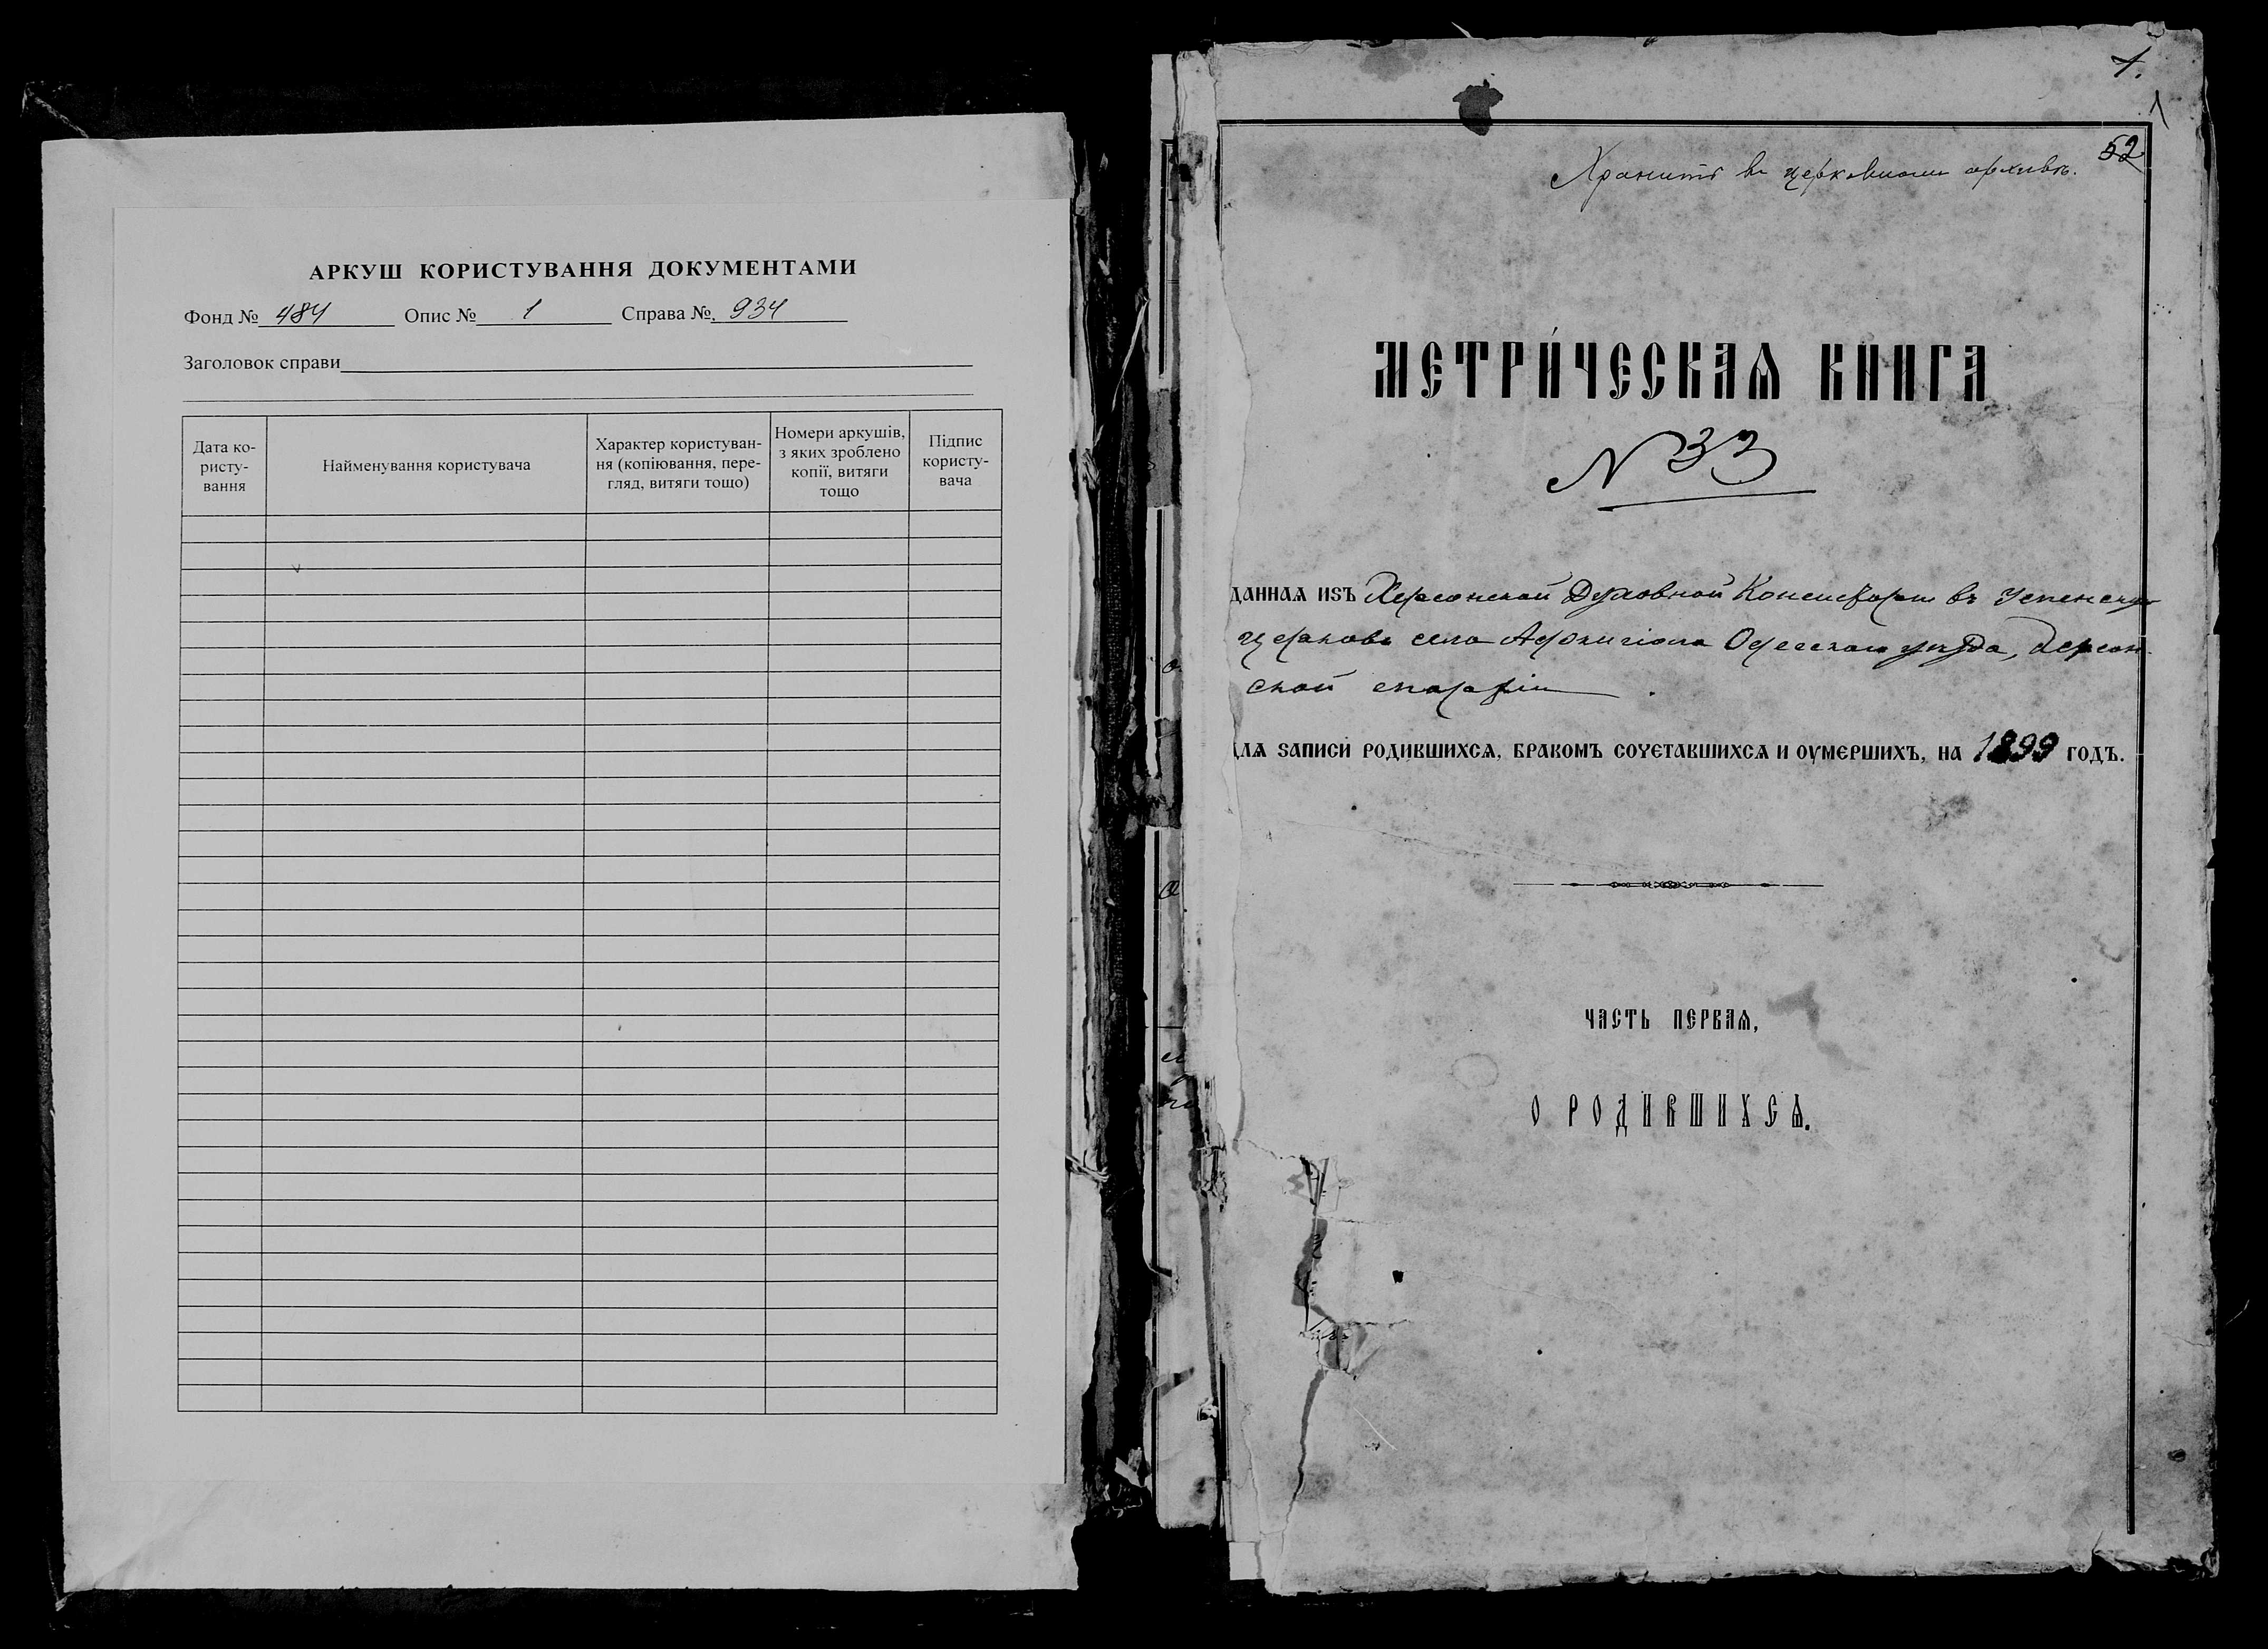 АРКУШ КОРИСТУВАННЯ ДОКУМЕНТАМИ
Фонд № 484 Опис № 1 Справа № 934
Заголовок справи
Дата ко-
ристу-
вання
Найменування користувача
Характер користуван-
ня (копіювання, пере-
гляд, витяги тощо)
Номери аркушів,
з яких зроблено
копії, витяги
тощо
Підпис
користу-
вача
1.
52
Хранить въ церковномъ архивѣ.
МЕТРИ́ЧЕСКАѦ КНИГА
N 33
ДАННАѦ ИЗЪ Херсонской Духовной Консисторіи въ Успенскую
церковь села Одесскаго уѣзда, Херсон-
ской епархіи
ДЛѦ ЗАПИСИ РОДИВШИХСѦ, БРАКОМЪ СОЧЕТАВШИХСѦ И ОУМЕРШИХЪ, НА 1899 ГОДЪ.
ЧАСТЬ ПЕРВАѦ,
О РОДИВШИХСѦ.